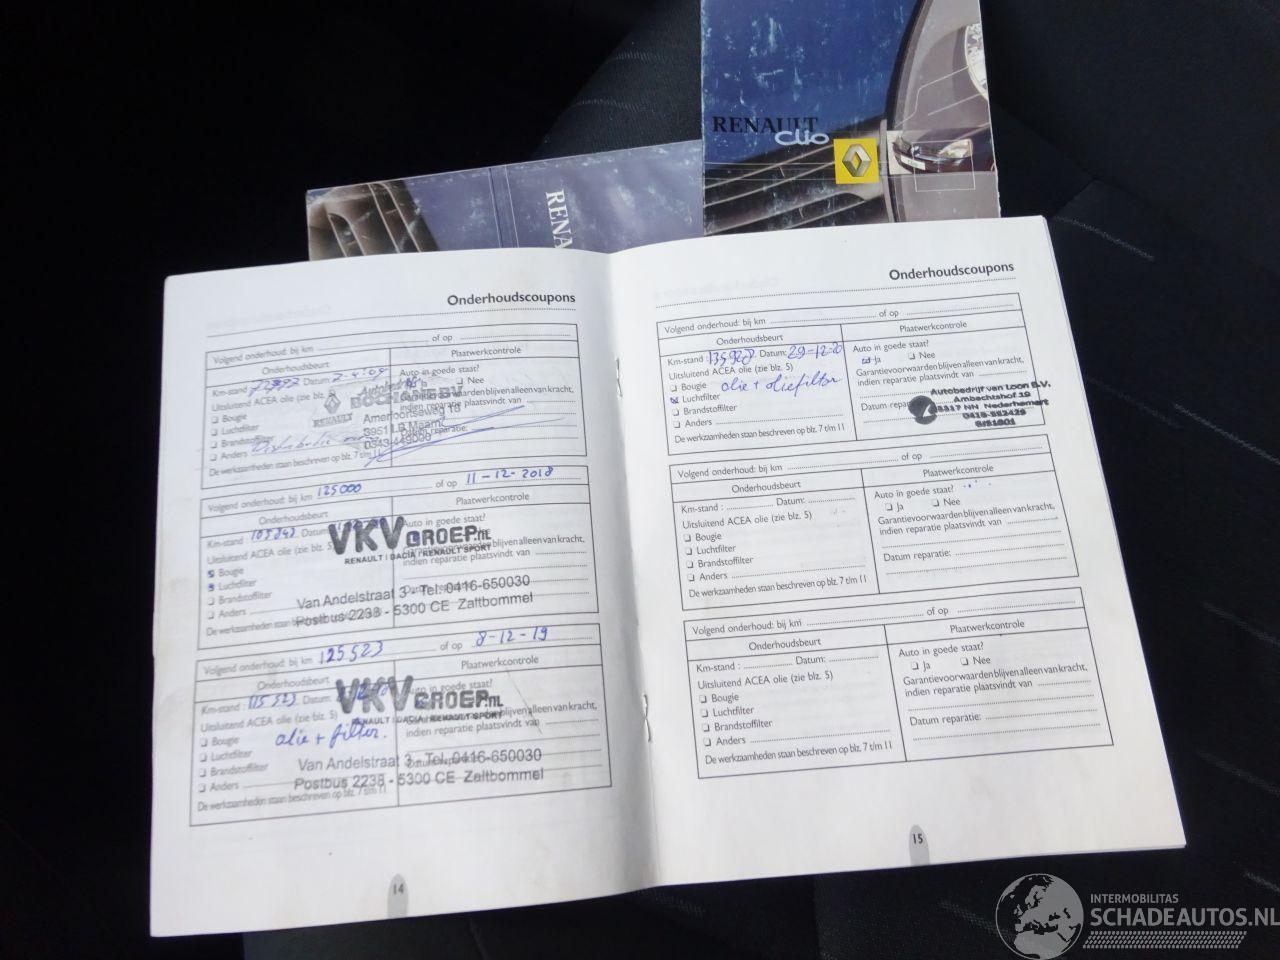 RENAULT
Clio
RENA
Onderhoudscoupons
Volgend onderhoud: bij km
of op
Onderhoudsbeurt
Plaatwerkcontrole
Km-stand
Datum: 2-4-09
Ja
Nee
Uitsluitend ACEA olie (zie blz. 5)
Garantievoorwaarden blijven van kracht,
indien reparatie plaatsvindt van
Bougie
Luchtfilter
Brandstoffilter
Anders
Datum reparatie:
De werkzaamheden staan beschreven op blz. 7 t/m 11
RENAULT
BOCHANE BV
Amersfoortseweg 18
3951 LB Maarn
0343-449000
Volgend onderhoud: bij km 125000
of op 11-12-2018
Onderhoudsbeurt
Plaatwerkcontrole
Km-stand : 105243
Datum
Auto in goede staat?
Uitsluitend ACEA olie (zie blz. 5)
Bougie
Luchtfilter
Brandstoffilter
Anders
De werkzaamheden staan
VKVGROEP.NL
RENAULT | DACIA | RENAULT SPORT
Van Andelstraat 3 - Tel. 0416-650030
Postbus 2238 - 5300 CE Zaltbommel
Volgend onderhoud: bij km 125523
of op 8-12-19
Onderhoudsbeurt
Plaatwerkcontrole
Km-stand : 115523
Datum
Auto in goede staat?
Uitsluitend ACEA olie (zie blz. 5)
indien reparatie plaatsvindt van
Bougie
olie + filter.
Luchtfilter
Brandstoffilter
Anders
De werkzaamheden staan beschreven op blz. 7 t/m 11
VKVGROEP.NL
RENAULT | DACIA | RENAULT SPORT
Van Andelstraat 3 - Tel. 0416-650030
Postbus 2238 - 5300 CE Zaltbommel
14
Onderhoudscoupons
Volgend onderhoud: bij km
of op
Onderhoudsbeurt
Plaatwerkcontrole
Km-stand : 135928 Datum: 29-12-20
Auto in goede staat?
Ja
Nee
Uitsluitend ACEA olie (zie blz. 5)
Garantievoorwaarden blijven van kracht,
indien reparatie plaatsvindt van
Bougie
olie + oliefilter
Luchtfilter
Brandstoffilter
Datum reparatie:
Anders
De werkzaamheden staan beschreven op blz. 7 t/m 11
Autobedrijf van Loon B.V.
Ambachtshof 19
5317 NN Nederhemert
0418-552429
Volgend onderhoud: bij km
of op
Onderhoudsbeurt
Plaatwerkcontrole
Km-stand :
Datum:
Auto in goede staat?
Ja
Nee
Uitsluitend ACEA olie (zie blz. 5)
Garantievoorwaarden blijven van kracht,
indien reparatie plaatsvindt van
Bougie
Luchtfilter
Brandstoffilter
Datum reparatie:
Anders
De werkzaamheden staan beschreven op blz. 7 t/m 11
Volgend onderhoud: bij km
of op
Onderhoudsbeurt
Plaatwerkcontrole
Km-stand :
Datum:
Auto in goede staat?
Ja
Nee
Uitsluitend ACEA olie (zie blz. 5)
Garantievoorwaarden blijven van kracht,
indien reparatie plaatsvindt van
Bougie
Luchtfilter
Brandstoffilter
Datum reparatie:
Anders
De werkzaamheden staan beschreven op blz. 7 t/m 11
15
INTERMOBILITAS
SCHADEAUTOS.NL